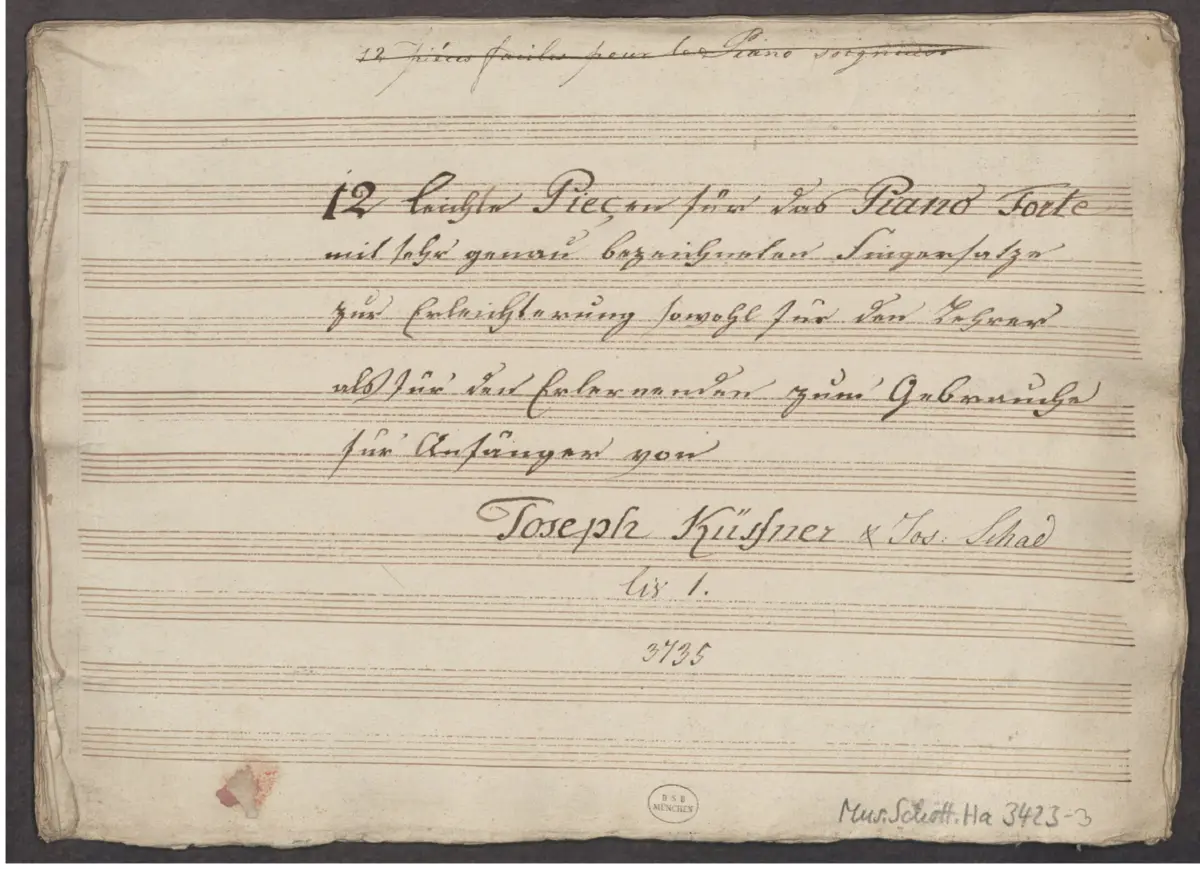 12 pièces faciles pour le Piano
12 leichte Pieçen für das Piano Forte
mit sehr genau bezeichneten Fingersatze
zur Erleichterung sowohl für den Lehrer
als für den Erlernenden zum Gebrauche
für Anfänger von
Joseph Küffner & Jos: Schad
liv 1.
3735
BSB
MÜNCHEN
Mus.Schott.Ha 3423-3